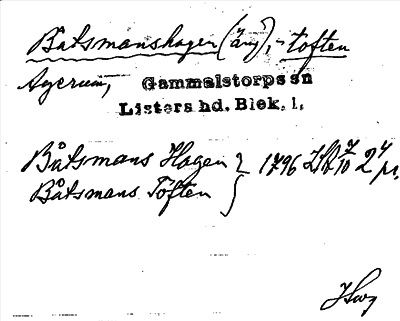 Båtsmanshagen (äng), -toften
Agerum, Gammalstorps sn
Listers hd. Blek. l.
Båtsmans Hagen } 1796
Båtsmans Töften